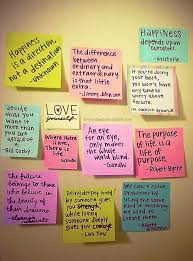 Happiness
is a direction
not a destination
-unknown
The difference
between ordinary
and extraordinary
is that little
extra.
- Jimmy Johnson
Happiness
depends upon
ourselves.
- Aristotle
If you're doing
your best,
you won't have
to worry about
failure.
decide
that you
want it
more than
you are
afraid of
it.
Bill Cosby
LOVE
yourself
Where there
is love,
there is
life.
Gandhi
An eye
for an
eye, only
makes the
whole world
blind.
-Gandhi
The purpose
of life is a
life of
purpose.
- Robert Byrne
The future
belongs to those
who believe in
the beauty
of their
dreams.
Being deeply loved
by someone
gives you strength,
while loving
someone deeply
gives you courage.
- Lao Tzu
We can't solve
problems by
using the same
kind of thinking
we used when
we created
them.